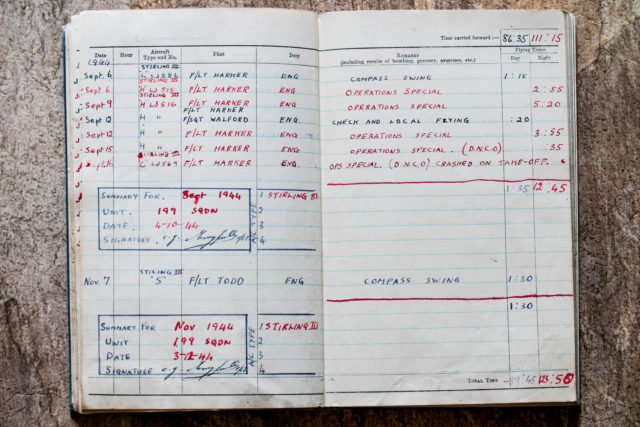 Time carried forward :— 86.35 111.15
Date Hour Aircraft Type and No. Pilot Duty Remarks (including results of bombing, gunnery, exercises, etc.) Flying Times Day Night
1944 STIRLING III
Sept. 6 L LJ582 F/LT HARKER ENG COMPASS SWING 1:15
STIRLING III
Sept. 6 H LJ518 F/LT HARKER ENG OPERATIONS SPECIAL 2:55
STIRLING III
Sept 9 H LJ516 F/LT HARKER ENG OPERATIONS SPECIAL 5:20
F/LT HARKER
Sept 12 H " F/SGT WALFORD ENG CHECK AND LOCAL FLYING :20
Sept 12 H " F/LT HARKER ENG OPERATIONS SPECIAL 3:55
Sept 15 H " F/LT HARKER ENG OPERATIONS SPECIAL. (D.N.C.O) :35
STIRLING III
Sept 16 C LJ569 F/LT HARKER ENG. OPS SPECIAL (D.N.C.O) CRASHED ON TAKE-OFF.
1:35 12:45
SUMMARY FOR. Sept 1944 1 STIRLING III
UNIT. 199 SQDN 2
DATE. 4-10-44 3
SIGNATURE. 4
A/C TYPE
STIRLING III
Nov. 7 "S" F/LT TODD ENG COMPASS SWING 1:30
1:30
SUMMARY FOR Nov 1944 1 STIRLING III
UNIT 199 SQDN 2
DATE 3-12-44 3
SIGNATURE 4
A/C TYPE
Total Time